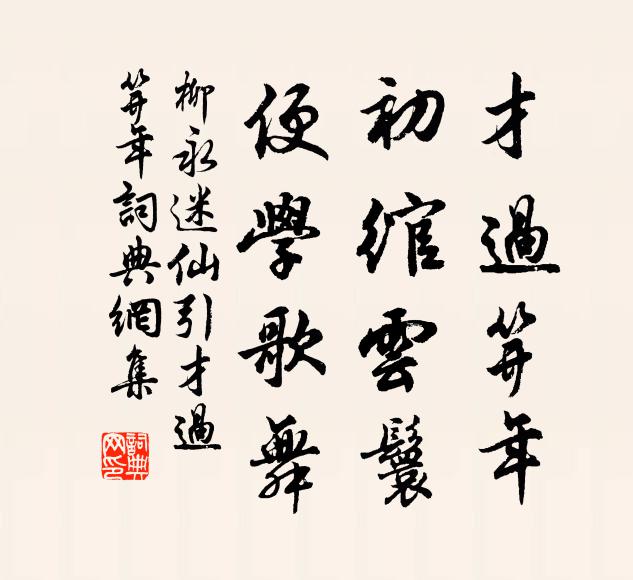 才過笄年
初綰雲鬟
便學歌舞
柳永迷仙引才過
笄年詞典網集
詞典
网印